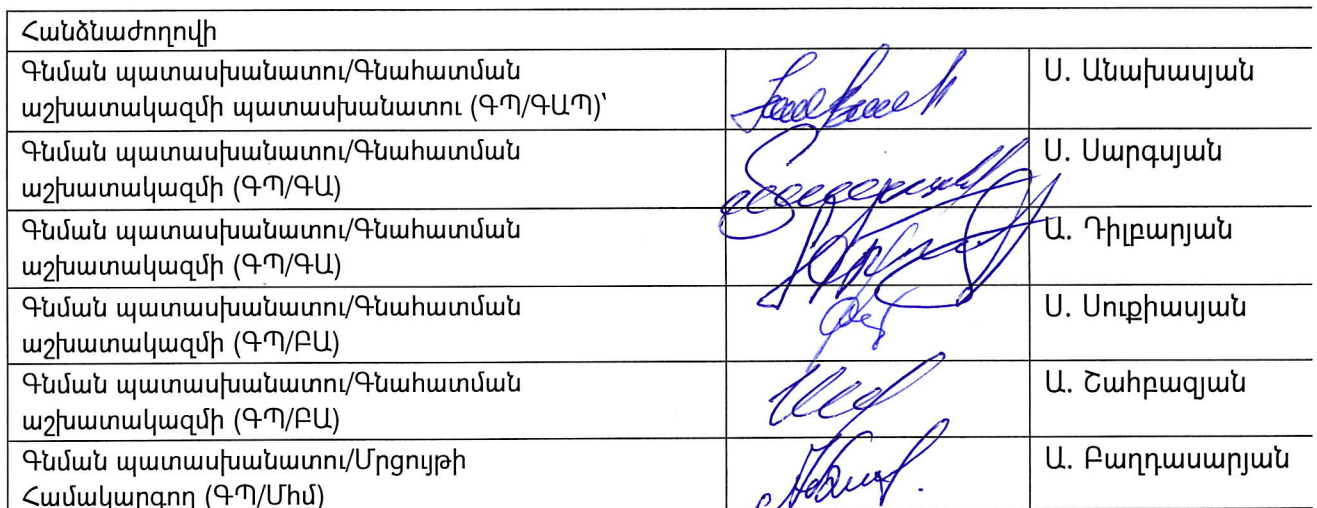 Հանձնաժողովի
Գնման պատասխանատու/Գնահատման
աշխատակազմի պատասխանատու (ԳՊ/ԳԱՊ)՝
Ս. Անախասյան
Գնման պատասխանատու/Գնահատման
աշխատակազմի (ԳՊ/ԳԱ)
Ս. Սարգսյան
Գնման պատասխանատու/Գնահատման
աշխատակազմի (ԳՊ/ԳԱ)
Ա. Դիլբարյան
Գնման պատասխանատու/Գնահատման
աշխատակազմի (ԳՊ/ԲԱ)
Ս. Սուքիասյան
Գնման պատասխանատու/Գնահատման
աշխատակազմի (ԳՊ/ԲԱ)
Ա. Շահբազյան
Գնման պատասխանատու/Մրցույթի
Համակարգող (ԳՊ/Միմ)
Ա. Բաղդասարյան